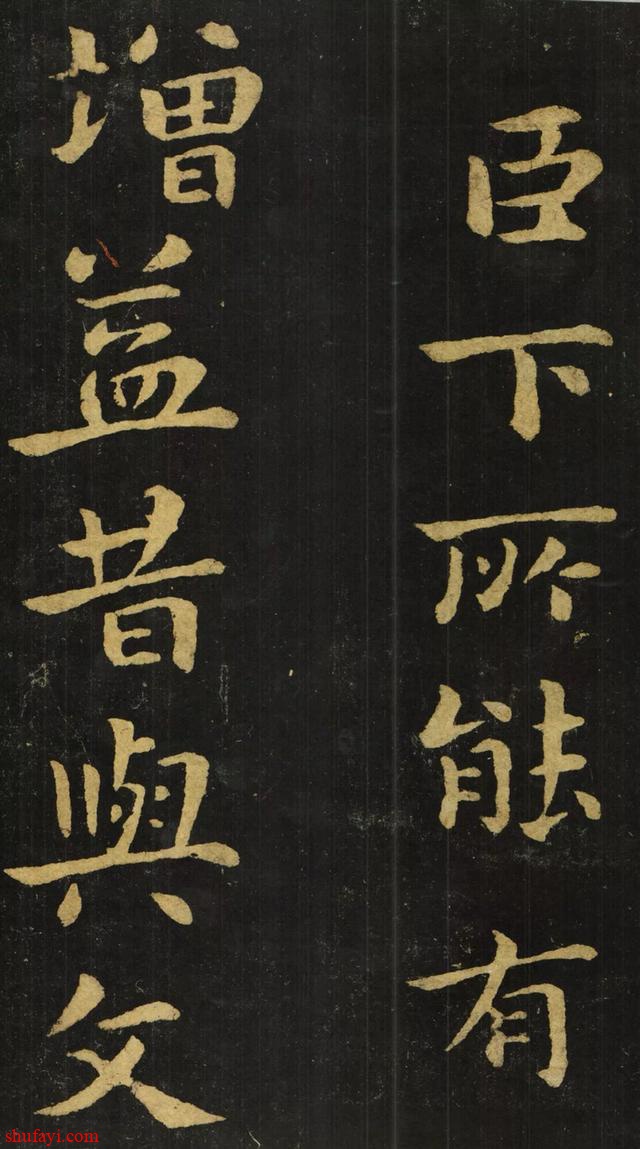 臣下所能有
增益昔與文
shufayi.com